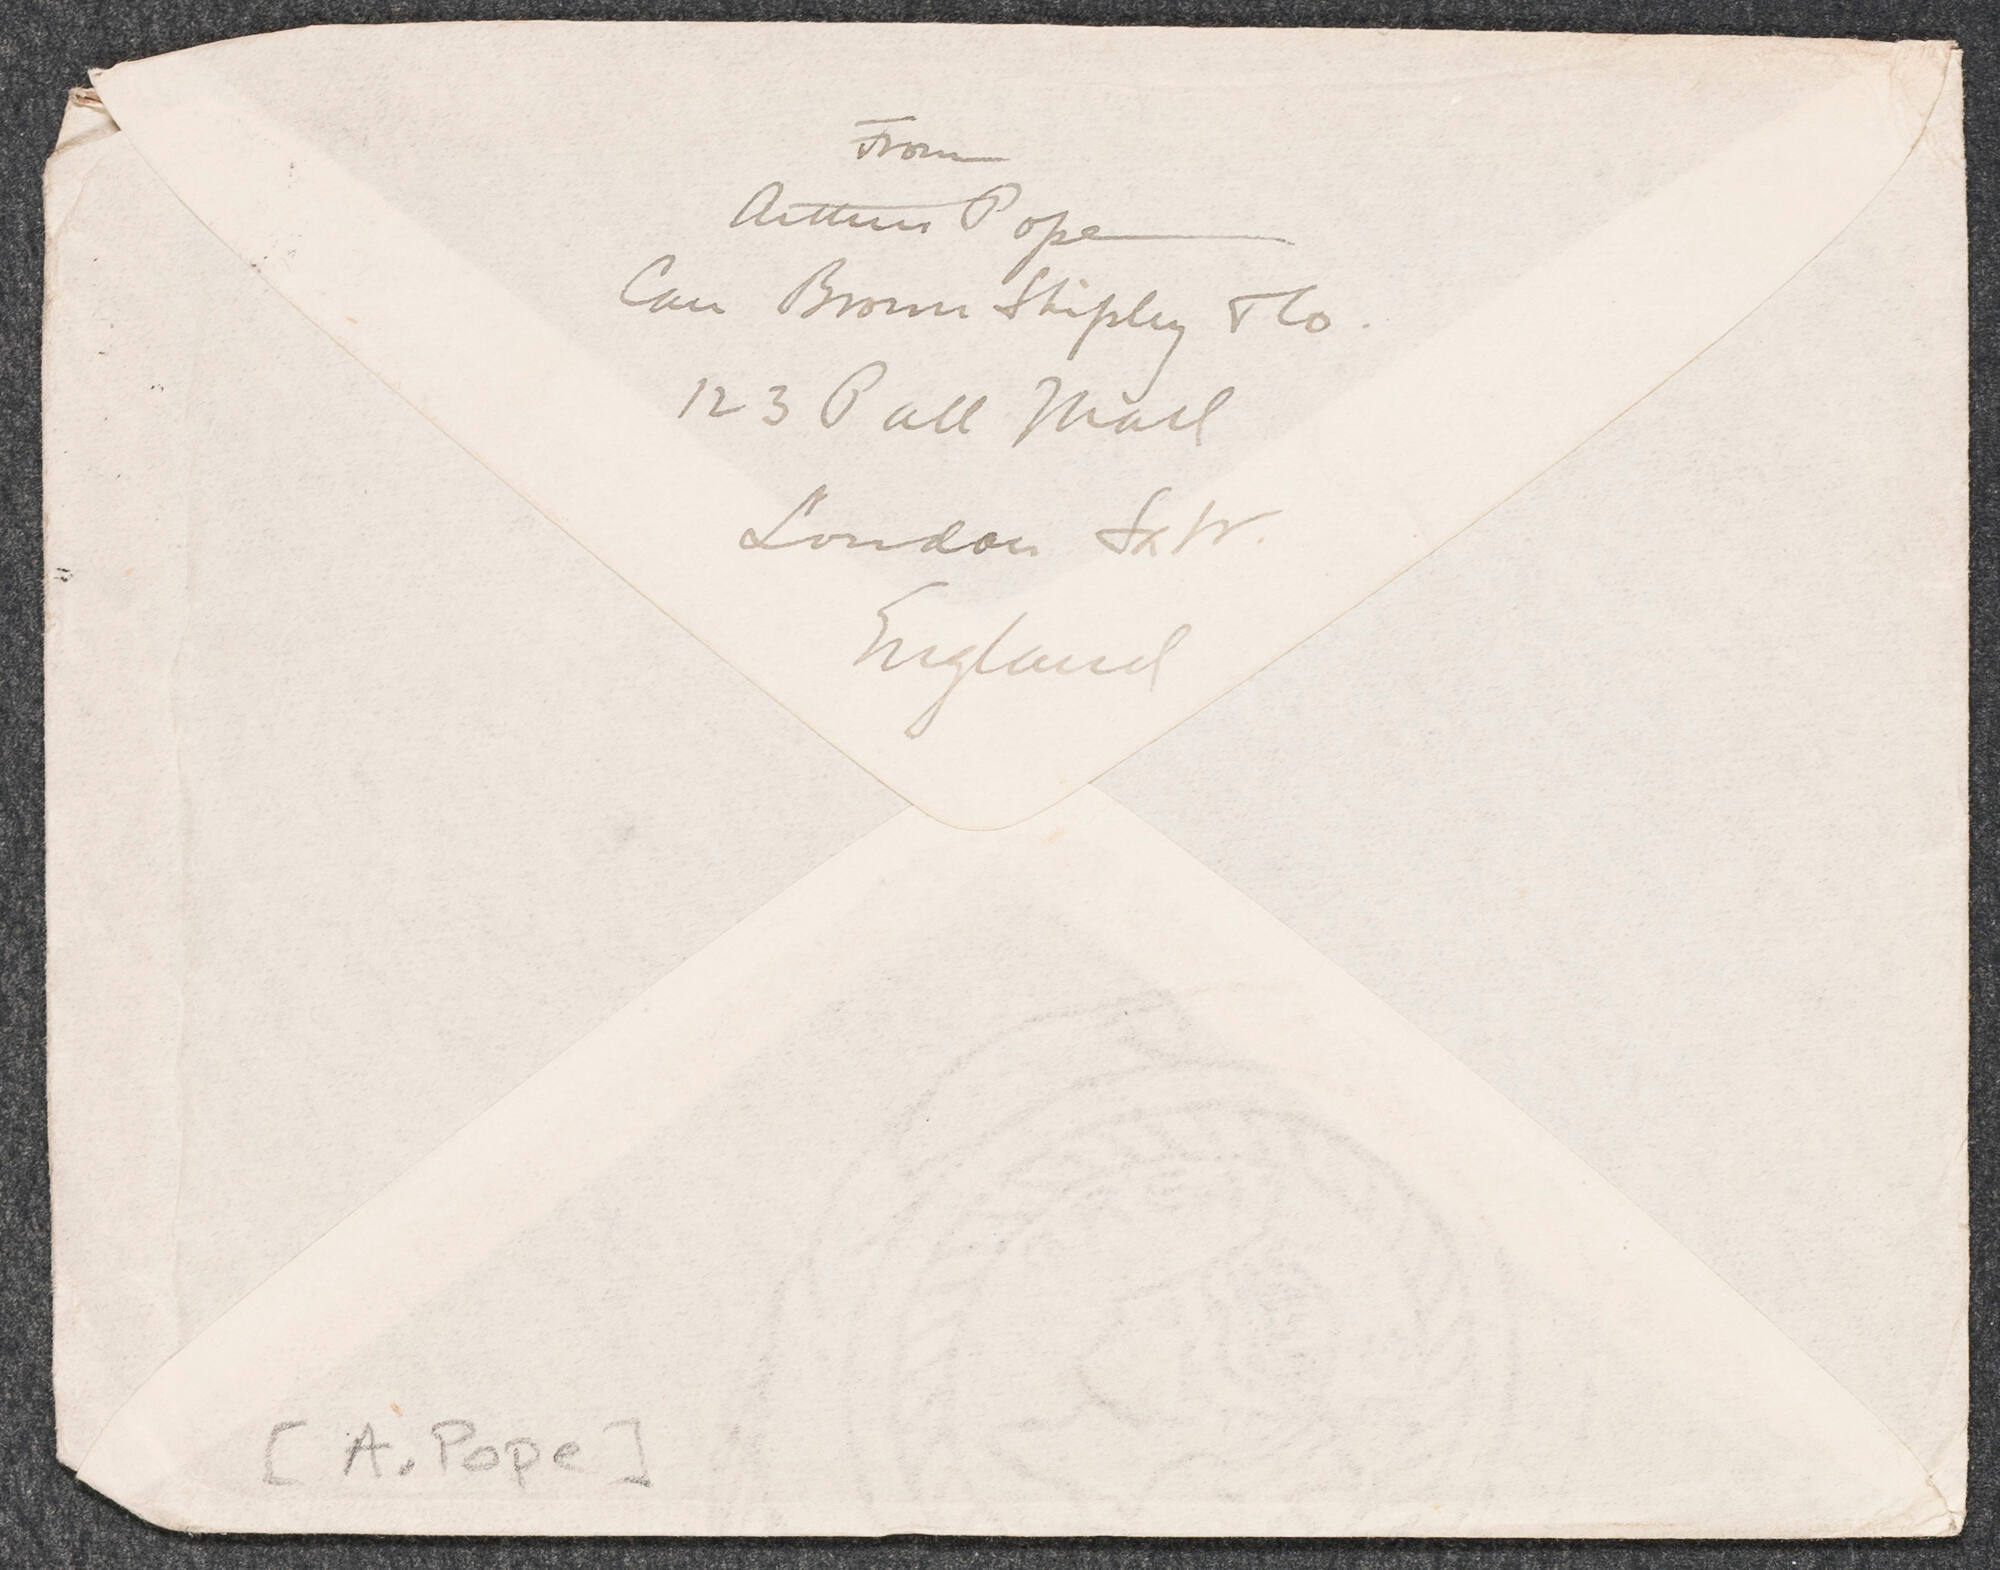 From
Arthur Pope
Care Brown Shipley & Co.
123 Pall Mall
London S.W.
England
[A. Pope]